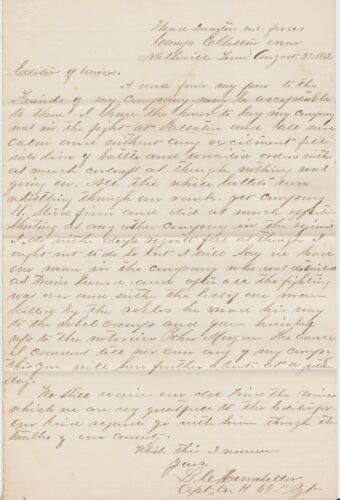 Head Quarters U.S. forces
Camp Ellston near
Nashville Tenn August 25 1862
Editor of Union.
A word from my pen to the
Friends of my Company may be acceptable
to them. I have the honor to say my company
was in the fight at Gallatin and all were
calm and without any excitement fell
into line of battle and awaited orders with
as much coolness as though nothing was
going on. All the while bullets were
whistling through our ranks. yet Company
H. stood firm and did as much
shooting as any other company in the
I do with deep regret feel as though I
ought not to do so but I will say we have
one man in the company who was
as and after all the fighting
was over and with the loss of one man
killed by the rebels he made his way
to the rebel camps and gave himself
up to the notorious John Morgan the cause
I cannot tell nor can any of my company
this you will here further about at a
day.
We still receive our old friend the Union
which we are very greatful to the Editor for
our kind regards go with him through the
of our country.
While this I remain
Yours.
Capt. Co. H 69" Rgt